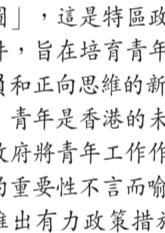 」，這是特區政
，旨在培育青年
和正向思維的新
青年是香港的未
政府將青年工作作
的重要性不言而喻
推出有力政策措